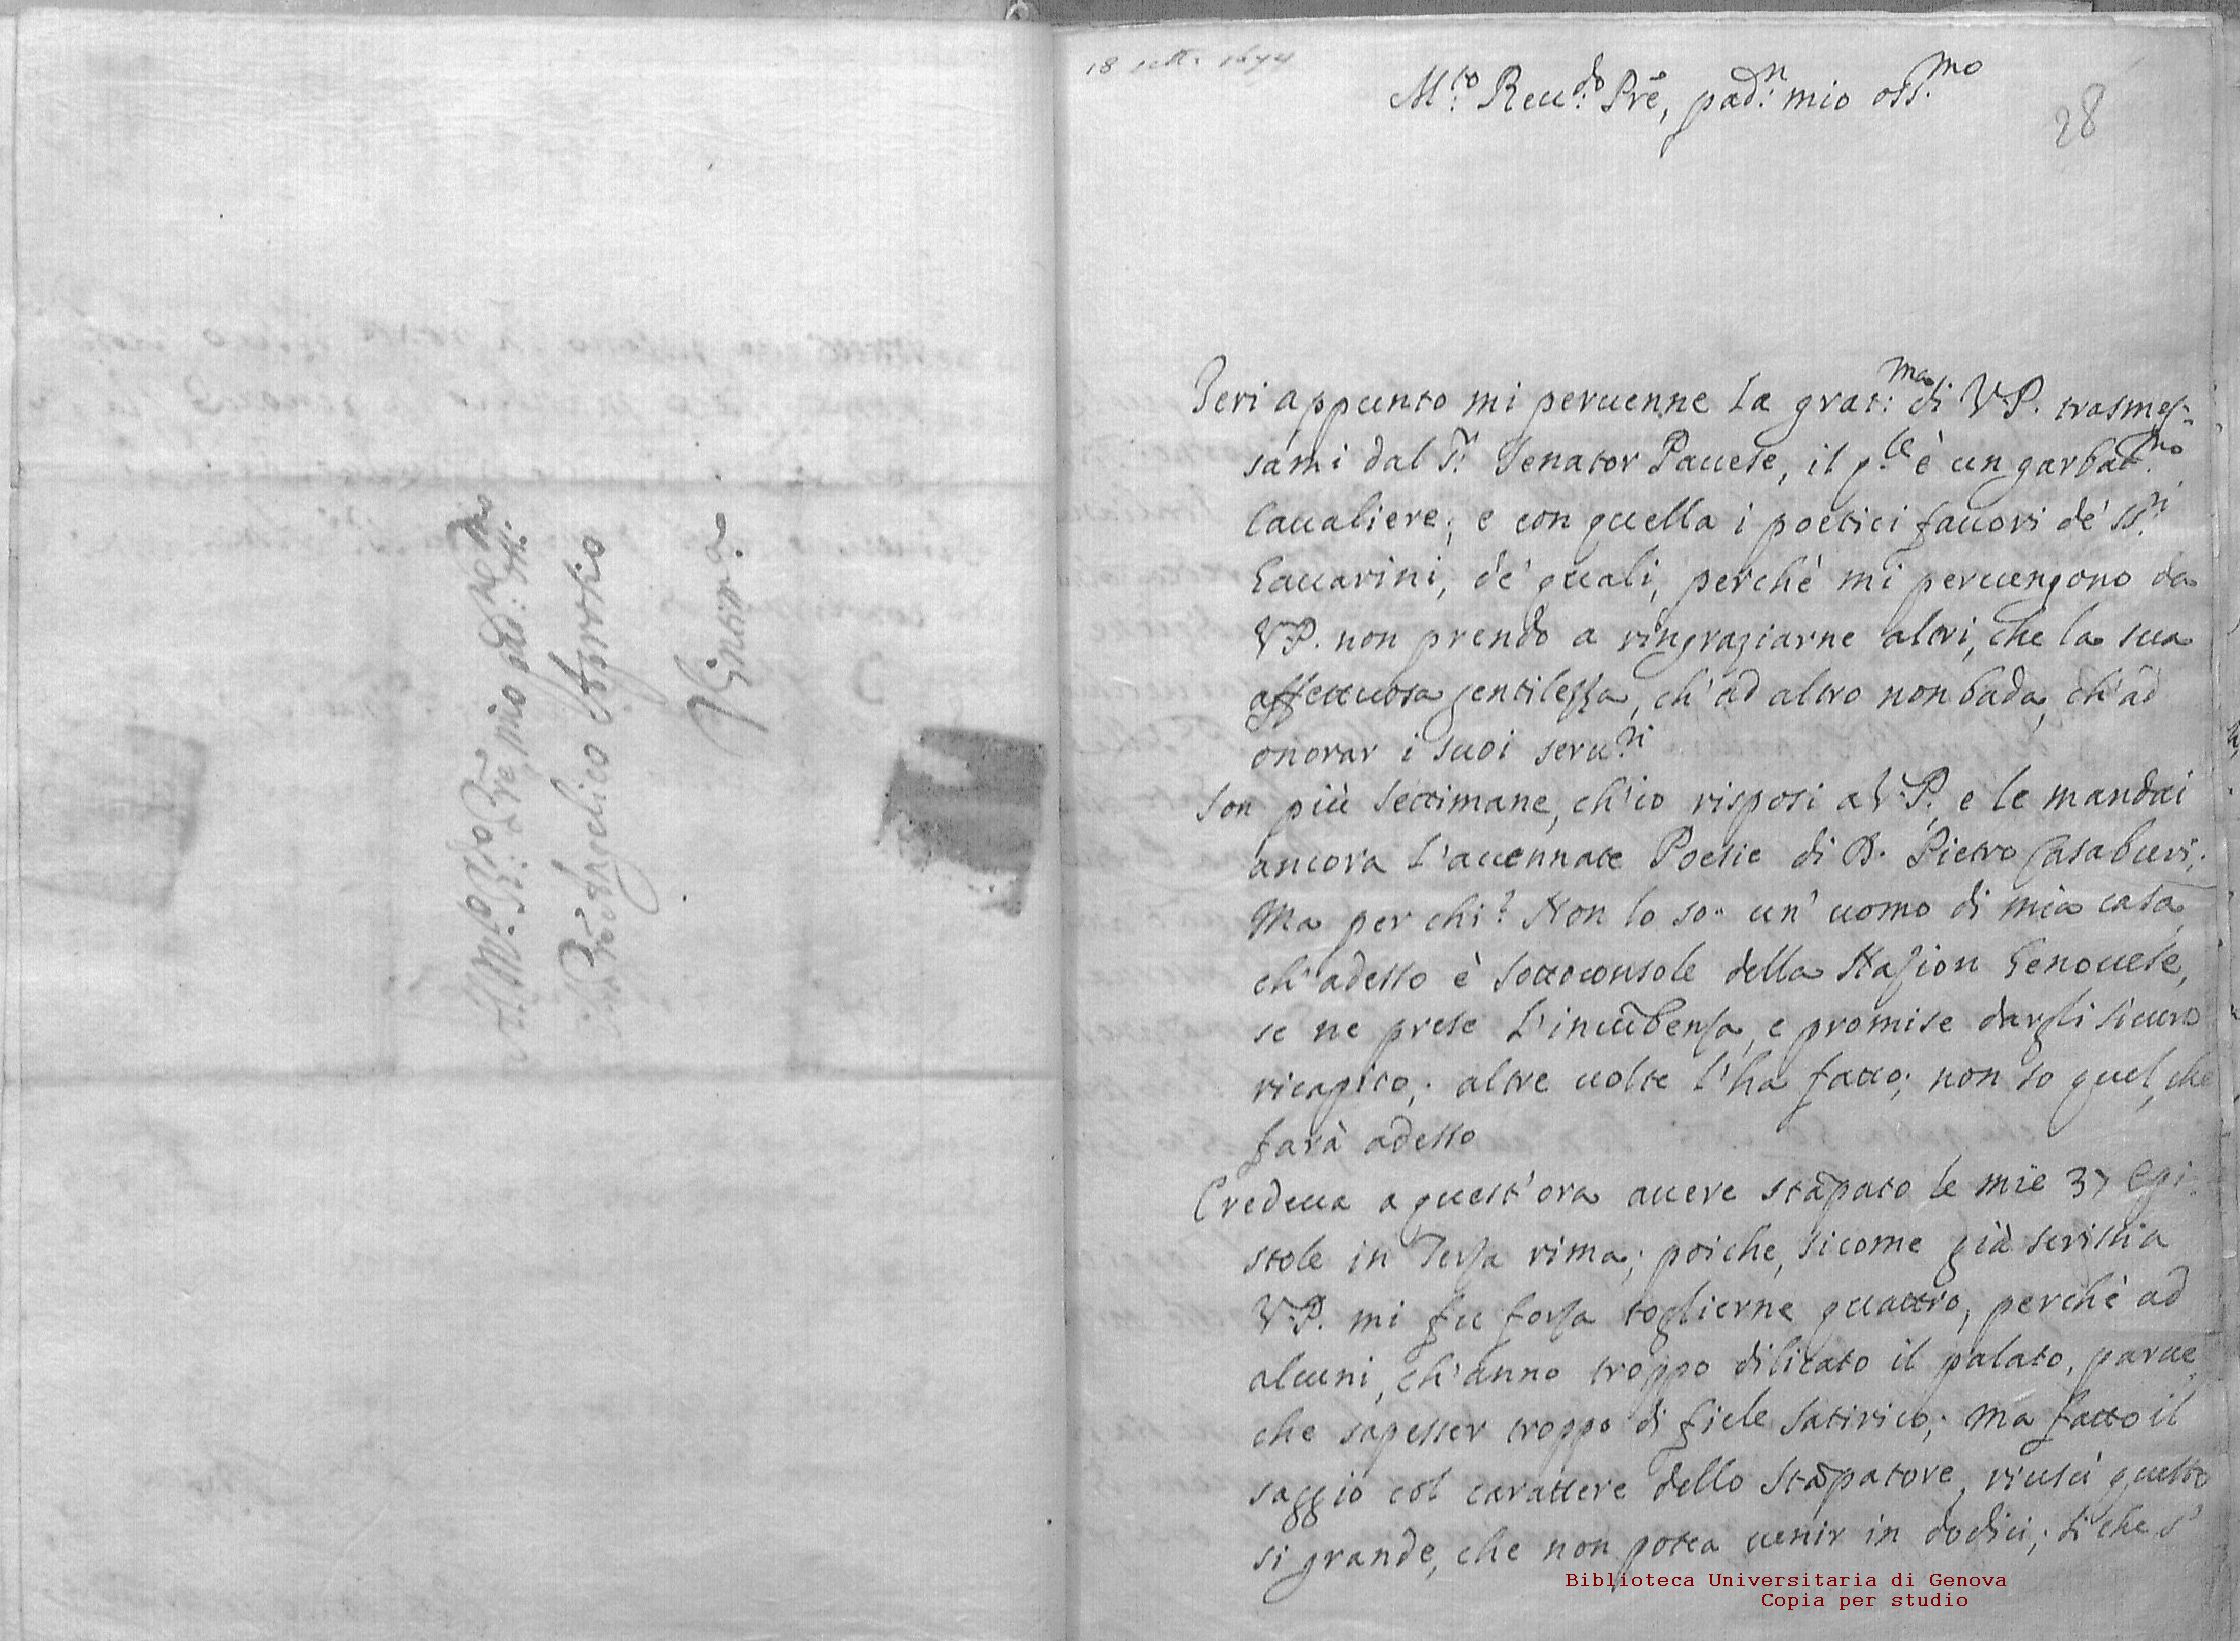 Al M.to R.do Prē, mio pad: oss.mo
Angelico Aprosio
Ventimig.a
18 sett. 1674
M.to Reu.do Prē, pad.n mio oss.mo
28
Ieri appunto mi peruenne la grat.ma di V.P. trasmes-
sami dal S.r Senator Pauese, il q.le è un garbat.mo
Caualiere; e con quella i poetici fauori de' SS.ri
Gauarini, de' quali, perchè mi peruengono da
V.P. non prendo a ringraziarne altri, che la sua
affettuosa gentilezza, ch'ad altro non bada, ch'ad
onorar i suoi seru.ri
Son più settimane, ch'io risposi a V.P. e le mandai
ancora l'accennate Poesie di D. Pietro Casaburi;
Ma per chi? Non lo so. un' uomo di mia casa,
ch'adesso è Sottoconsole della Nazion Genouese,
se ne prese l'incūbenza, e promise dargli sicuro
ricapito; altre uolte l'ha fatto; non so quel, che
farà adesso
Credeua a quest'ora auere stāpato le mie 37 Epi-
stole in Terza rima; poiche, sicome già scrissi a
V.P. mi fu forza toglierne quattro, perchè ad
alcuni, ch'anno troppo dilicato il palato, parue,
che sapesser troppo di fiele satirico; Ma fatto il
saggio col carattere dello Stāpatore, riuscì questo
si grande, che non potea uenir in dodici; si che s'
Biblioteca Universitaria di Genova
Copia per studio